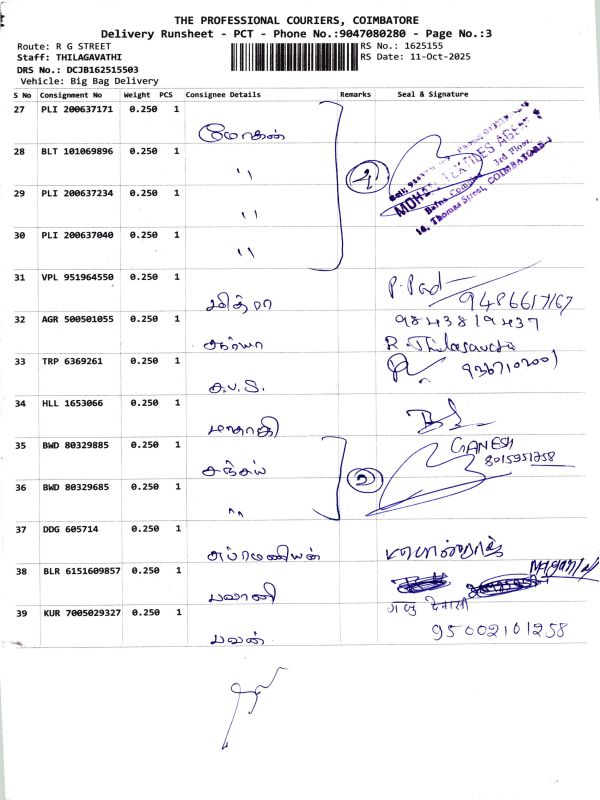 THE PROFESSIONAL COURIERS, COIMBATORE
Delivery Runsheet - PCT - Phone No.:9047080280 - Page No.:3
Route: R G STREET
RS No.: 1625155
Staff: THILAGAVATHI
RS Date: 11-Oct-2025
DRS No.: DCJB162515503
Vehicle: Big Bag Delivery
S No Consignment No Weight PCS Consignee Details Remarks Seal & Signature
27 PLI 200637171 0.250 1 மோகன்
28 BLT 101069896 0.250 1 ''
29 PLI 200637234 0.250 1 ''
30 PLI 200637040 0.250 1 ''
4
MOHAN TEXTILES AGENCY
3rd Floor
Thomas Street, COIMBATORE
31 VPL 951964550 0.250 1 மித்ரா
32 AGR 500501055 0.250 1 சூர்யா 9843819437
R. Thilagavathi
33 TRP 6369261 0.250 1
34 HLL 1653066 0.250 1
35 BWD 80329885 0.250 1 சஞ்சய் GANESH
2
36 BWD 80329685 0.250 1 ''
37 DDG 605714 0.250 1 சுப்ரமணியன்
38 BLR 6151609857 0.250 1 பவானி
39 KUR 7005029327 0.250 1 பவன் 95002101258